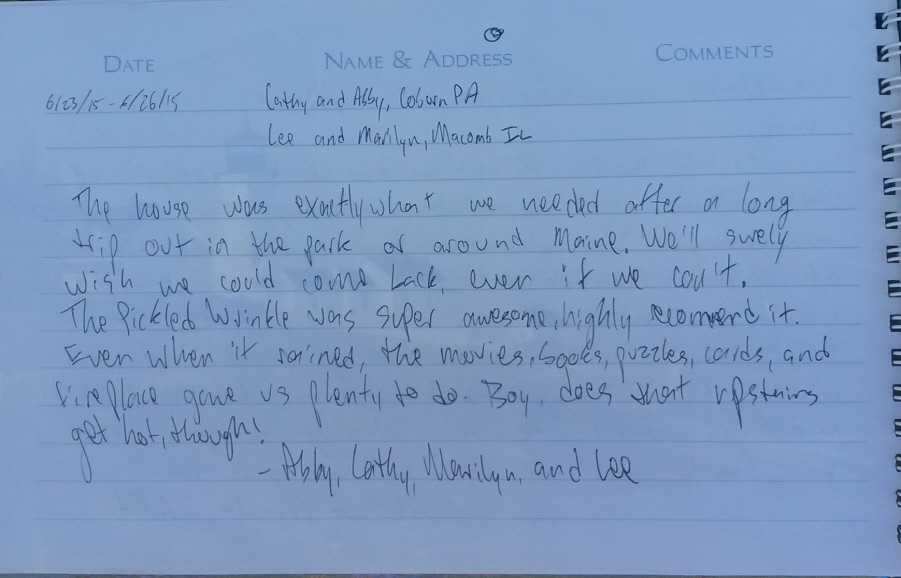 DATE NAME & ADDRESS COMMENTS
6/23/15 - 6/26/15 Cathy and Abby, Coburn PA
Lee and Marilyn, Macomb IL
The house was exactly what we needed after a long
trip out in the park or around Maine. We'll surely
wish we could come back, even if we can't.
The Pickled Wrinkle was super awesome, highly recommend it.
Even when it rained, the movies, books, puzzles, cards, and
fireplace gave us plenty to do. Boy, does that upstairs
get hot, though!
- Abby, Cathy, Marilyn, and Lee